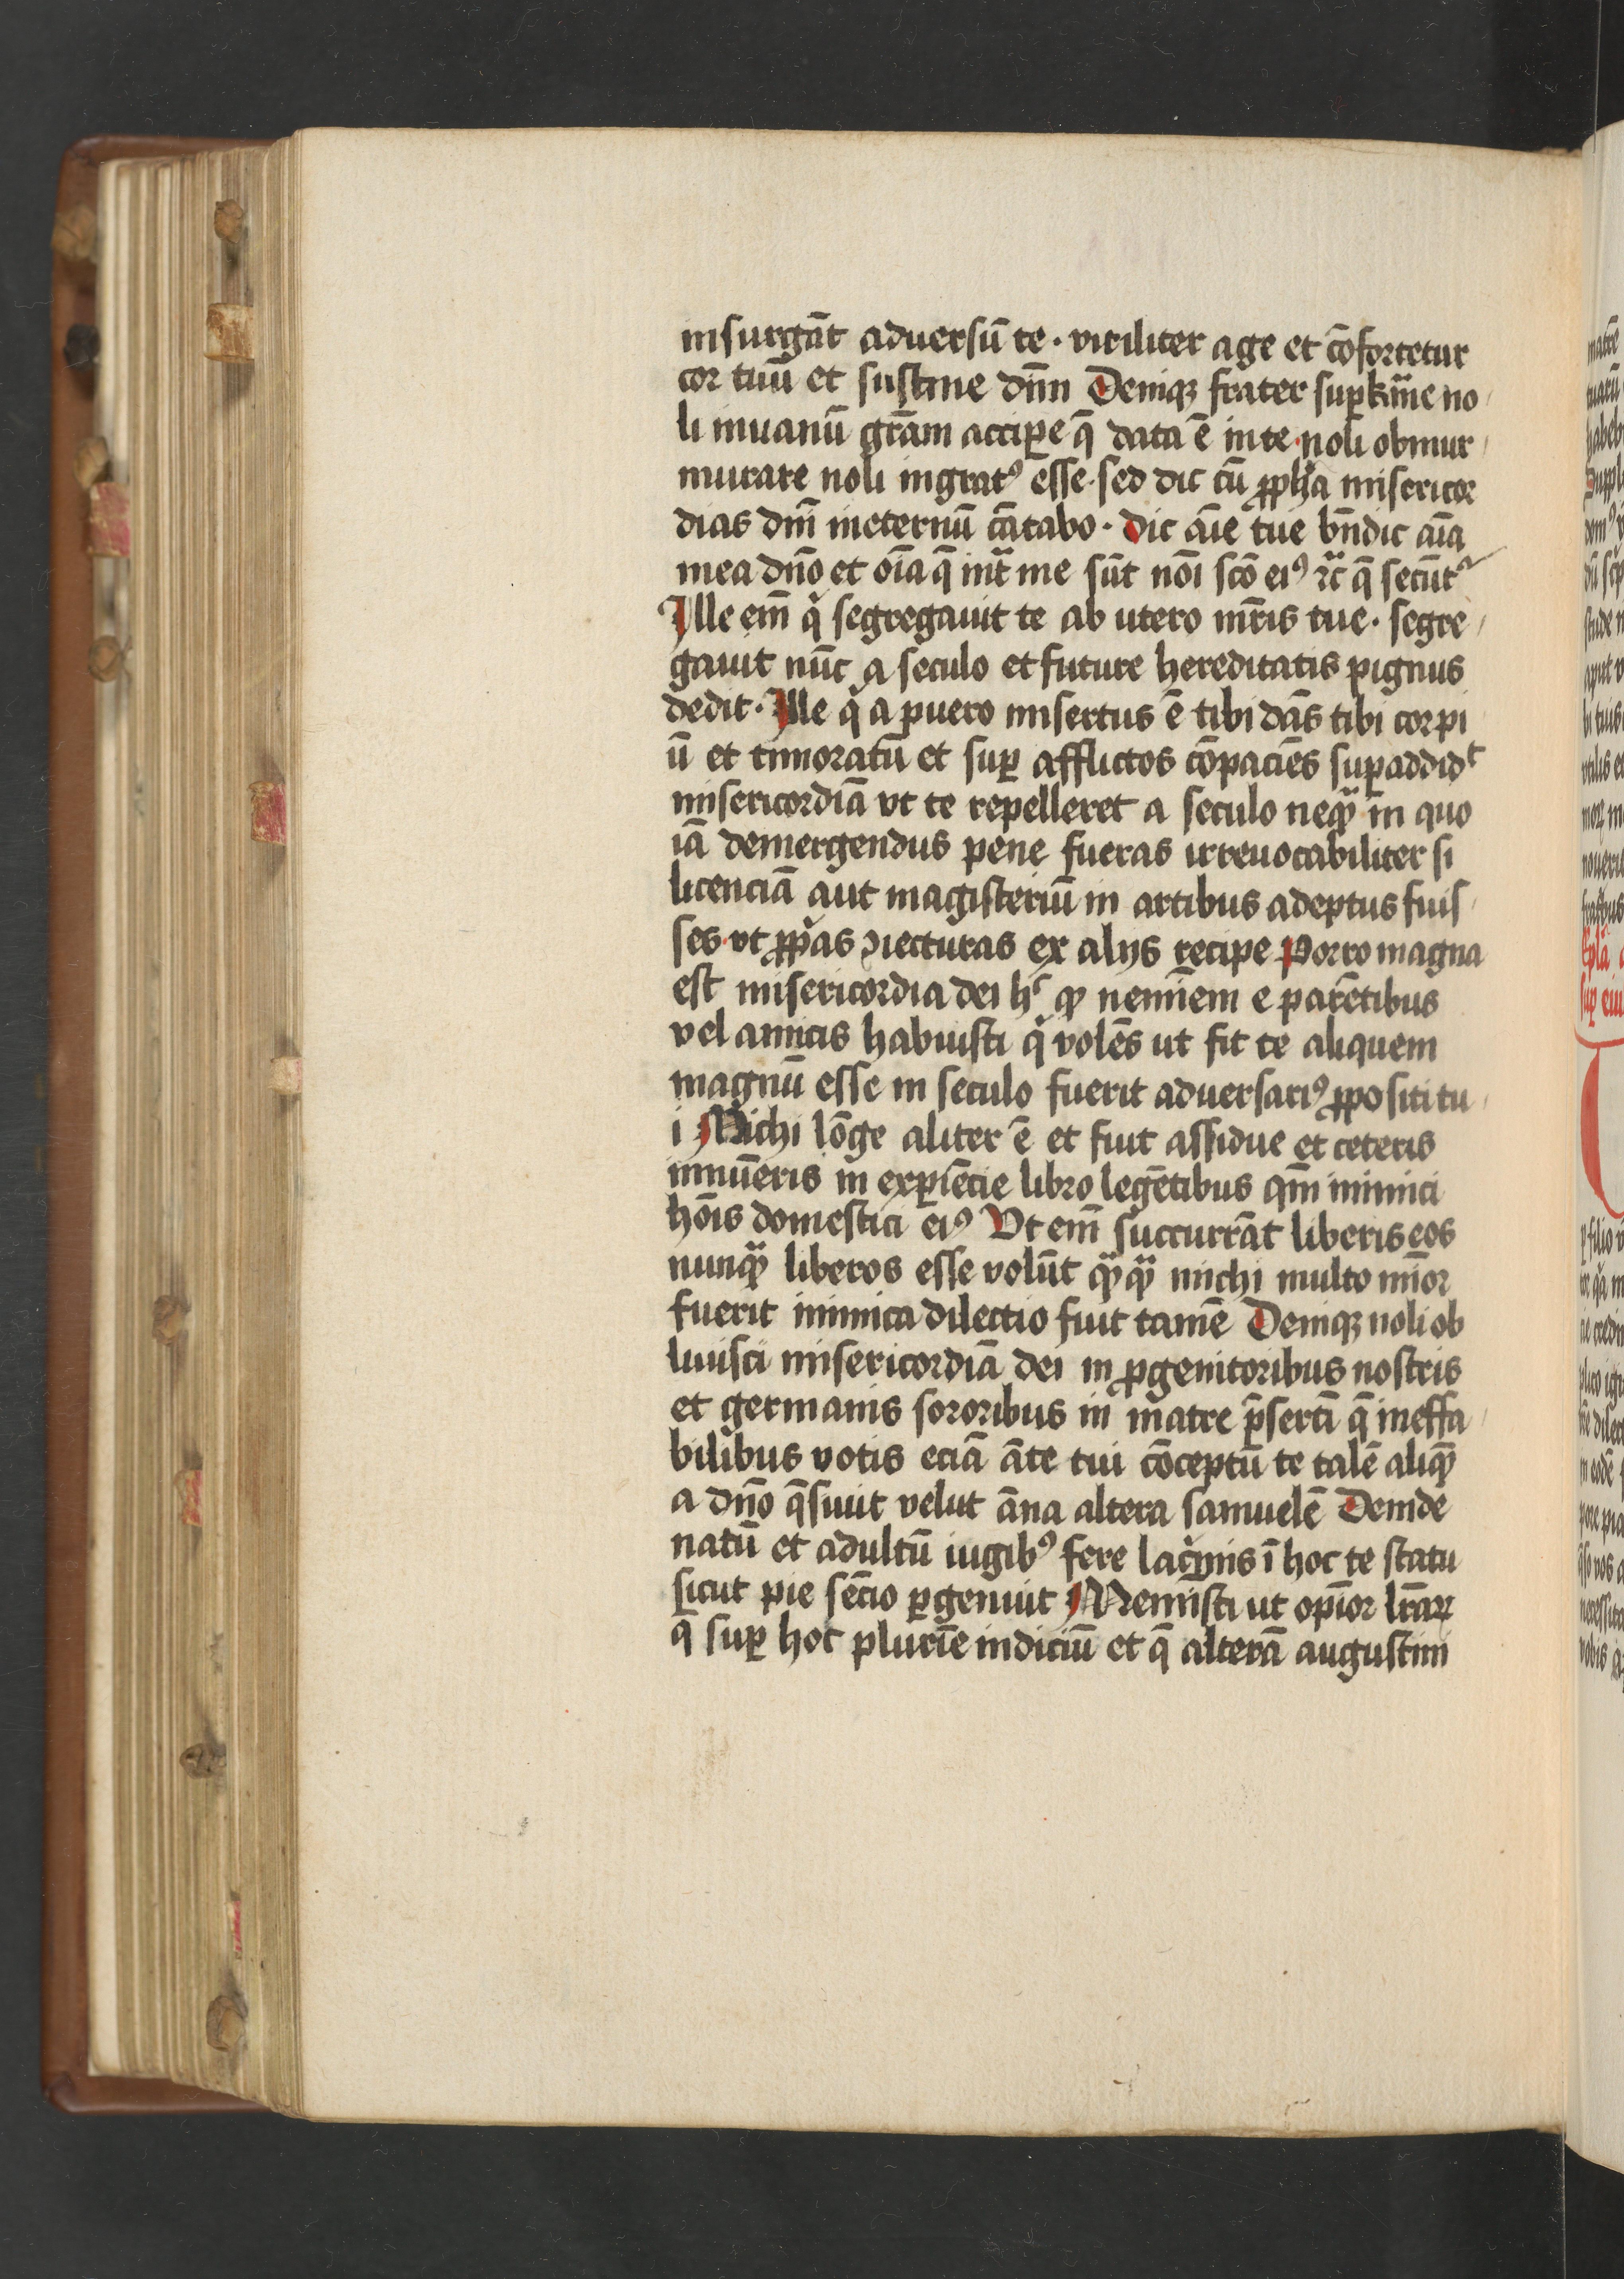 insurgāt aduersū te · viriliter age et cōfortetur
cor tuū et sustine dnm̄ Deniqꝫ frater supkīme no
li inuanū grām accipe q̄ data ē in te · noli obmur
murare noli ingratꝰ esse · sed dic cū ꝓpha misericor
dias dnī ineternū cātabo · dic aīe tue bn̄dic aīa
mea dn̄o et oīa q̄ int̄ me sūt nōi scō eiꝰ ⁊c̄ q̄ secūtʳ
Ille em̄ q̇ segregauit te ab utero mr̄is tue · segre
gauit nūc a seculo et future hereditatis pignus
dedit · Ille q̇ a puero misertus ē tibi dās tibi cor pi
ū et timoratū et suꝑ afflictos cōpaciēs suꝑaddidᵗ
misericordiā vt te repelleret a seculo neqꝫ in quo
iā demergendus pene fueras irreuocabiliter si
licenciā aut magisteriū in artibus adeptus fuis
ses · vt ꝓpas ꝯiecturas ex alijs recipe Porro magna
est misericordia dei hᶜ qꝫ neminem e parētibus
vel amicis habuisti q̇ volēs ut fit te aliquem
magnū esse in seculo fuerit aduersariꝰ ꝓpositi tu
i Michi lōge aliter ē et fuit assidue et ceteris
innūeris in exꝑiēcie libro legētibus qm̄ inimici
hōis domestici eiꝰ Vt em̄ succurrāt liberis eos
nunqꝫ liberos esse volūt qꝫqꝫ michi multo mīor
fuerit inimica dilectio fuit tamē Deniqꝫ noli ob
liuisci misericordiā dei in ꝓgenitoribus nostris
et germanis sororibus in matre p̄sertī q̄ ineffa
bilibus votis eciā āte tui cōceptū te talē aliqꝫ
a dn̄o q̄siuit velut āna altera samuelē Deinde
natū et adultū iugibꝰ fere lacrīmis ī hoc te statu
sicut pie sēcio ꝑgenuit Meministi ut opīor lr̄aꝝ
q̄ suꝑ hoc plurīe indiciū et q̄ alterā augustini